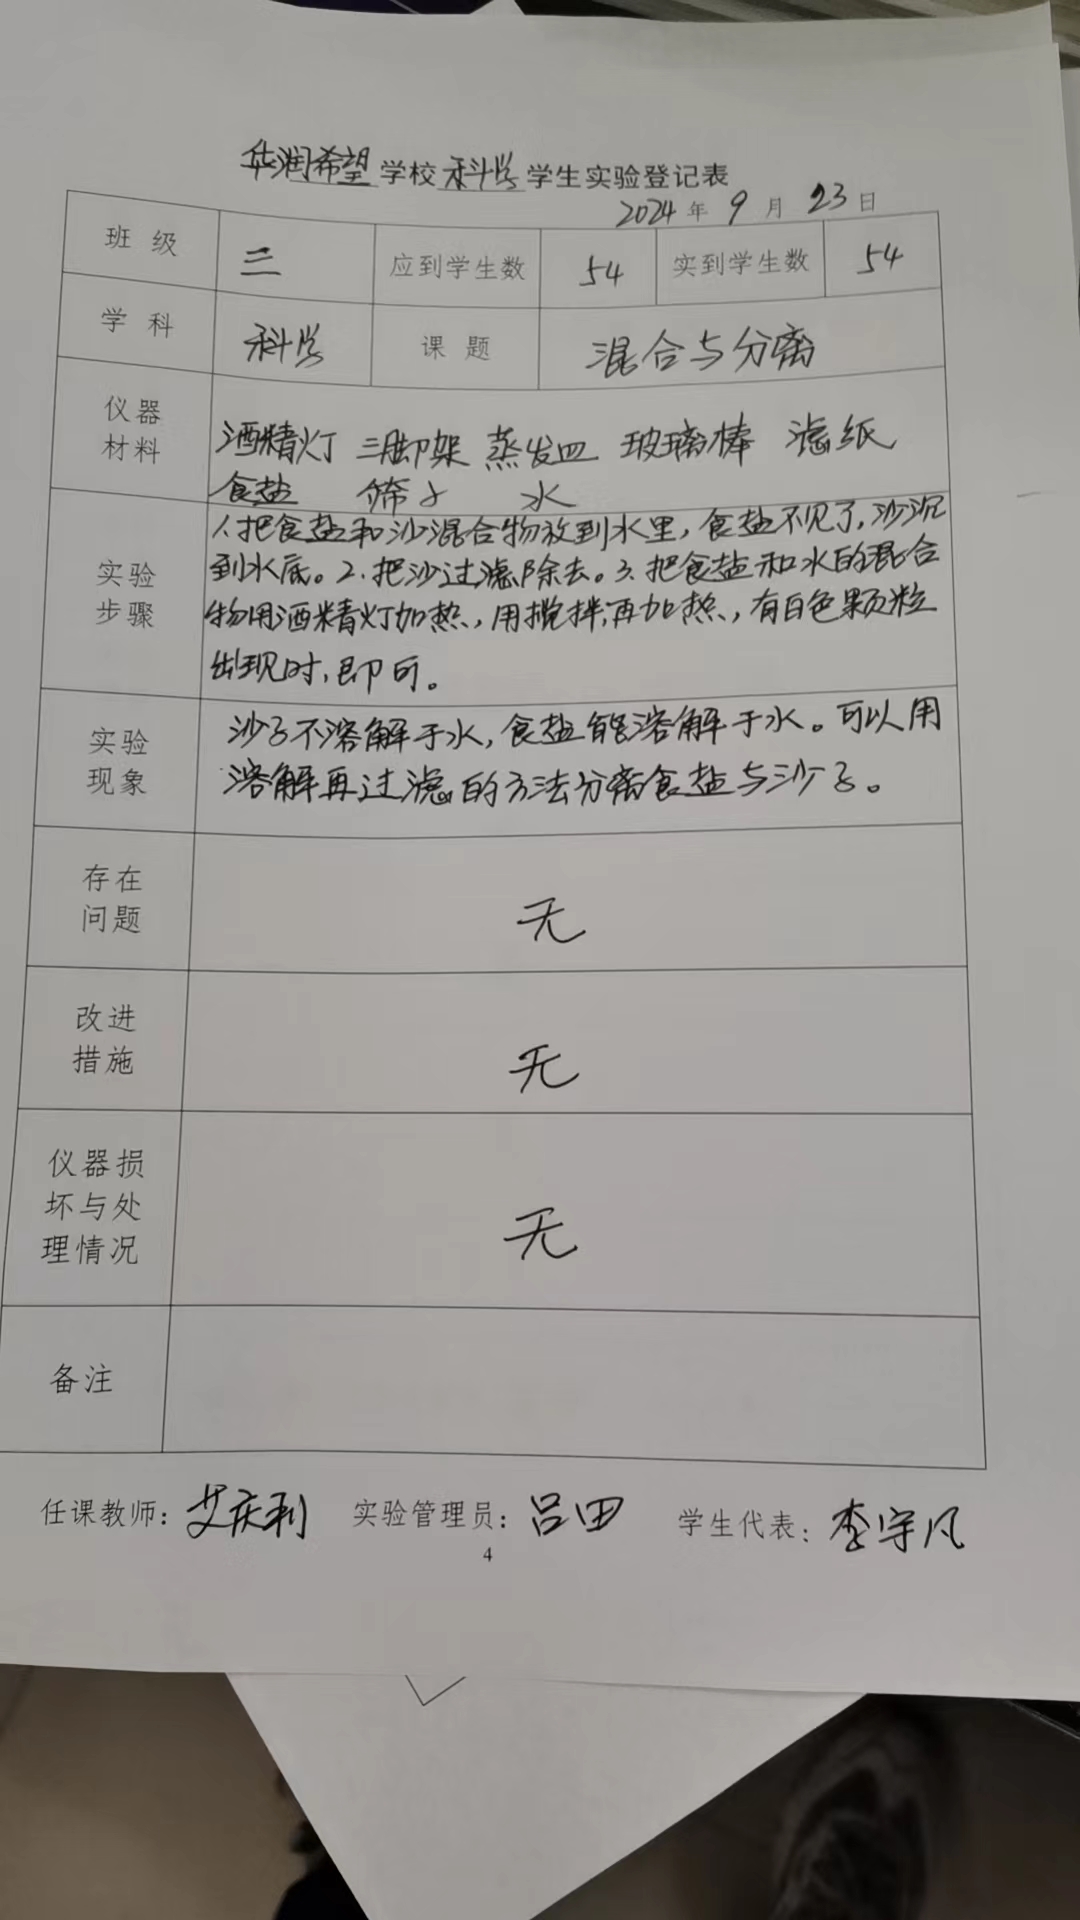 华润希望学校科学学生实验登记表
2024年9月23日
班级 三 应到学生数 54 实到学生数 54
学科 科学 课题 混合与分离
仪器材料
酒精灯 三脚架 蒸发皿 玻璃棒 滤纸
食盐 筛子 水
实验步骤
1.把食盐和沙混合物放到水里,食盐不见了,沙沉
到水底。2.把沙过滤除去。3.把食盐和水的混合
物用酒精灯加热,用搅拌,再加热,有白色颗粒
出现时,即可。
实验现象
沙子不溶解于水,食盐能溶解于水。可以用
溶解再过滤的方法分离食盐与沙子。
存在问题
无
改进措施
无
仪器损坏与处理情况
无
备注
任课教师:艾庆利 实验管理员:吕田 学生代表:李宇凡
4